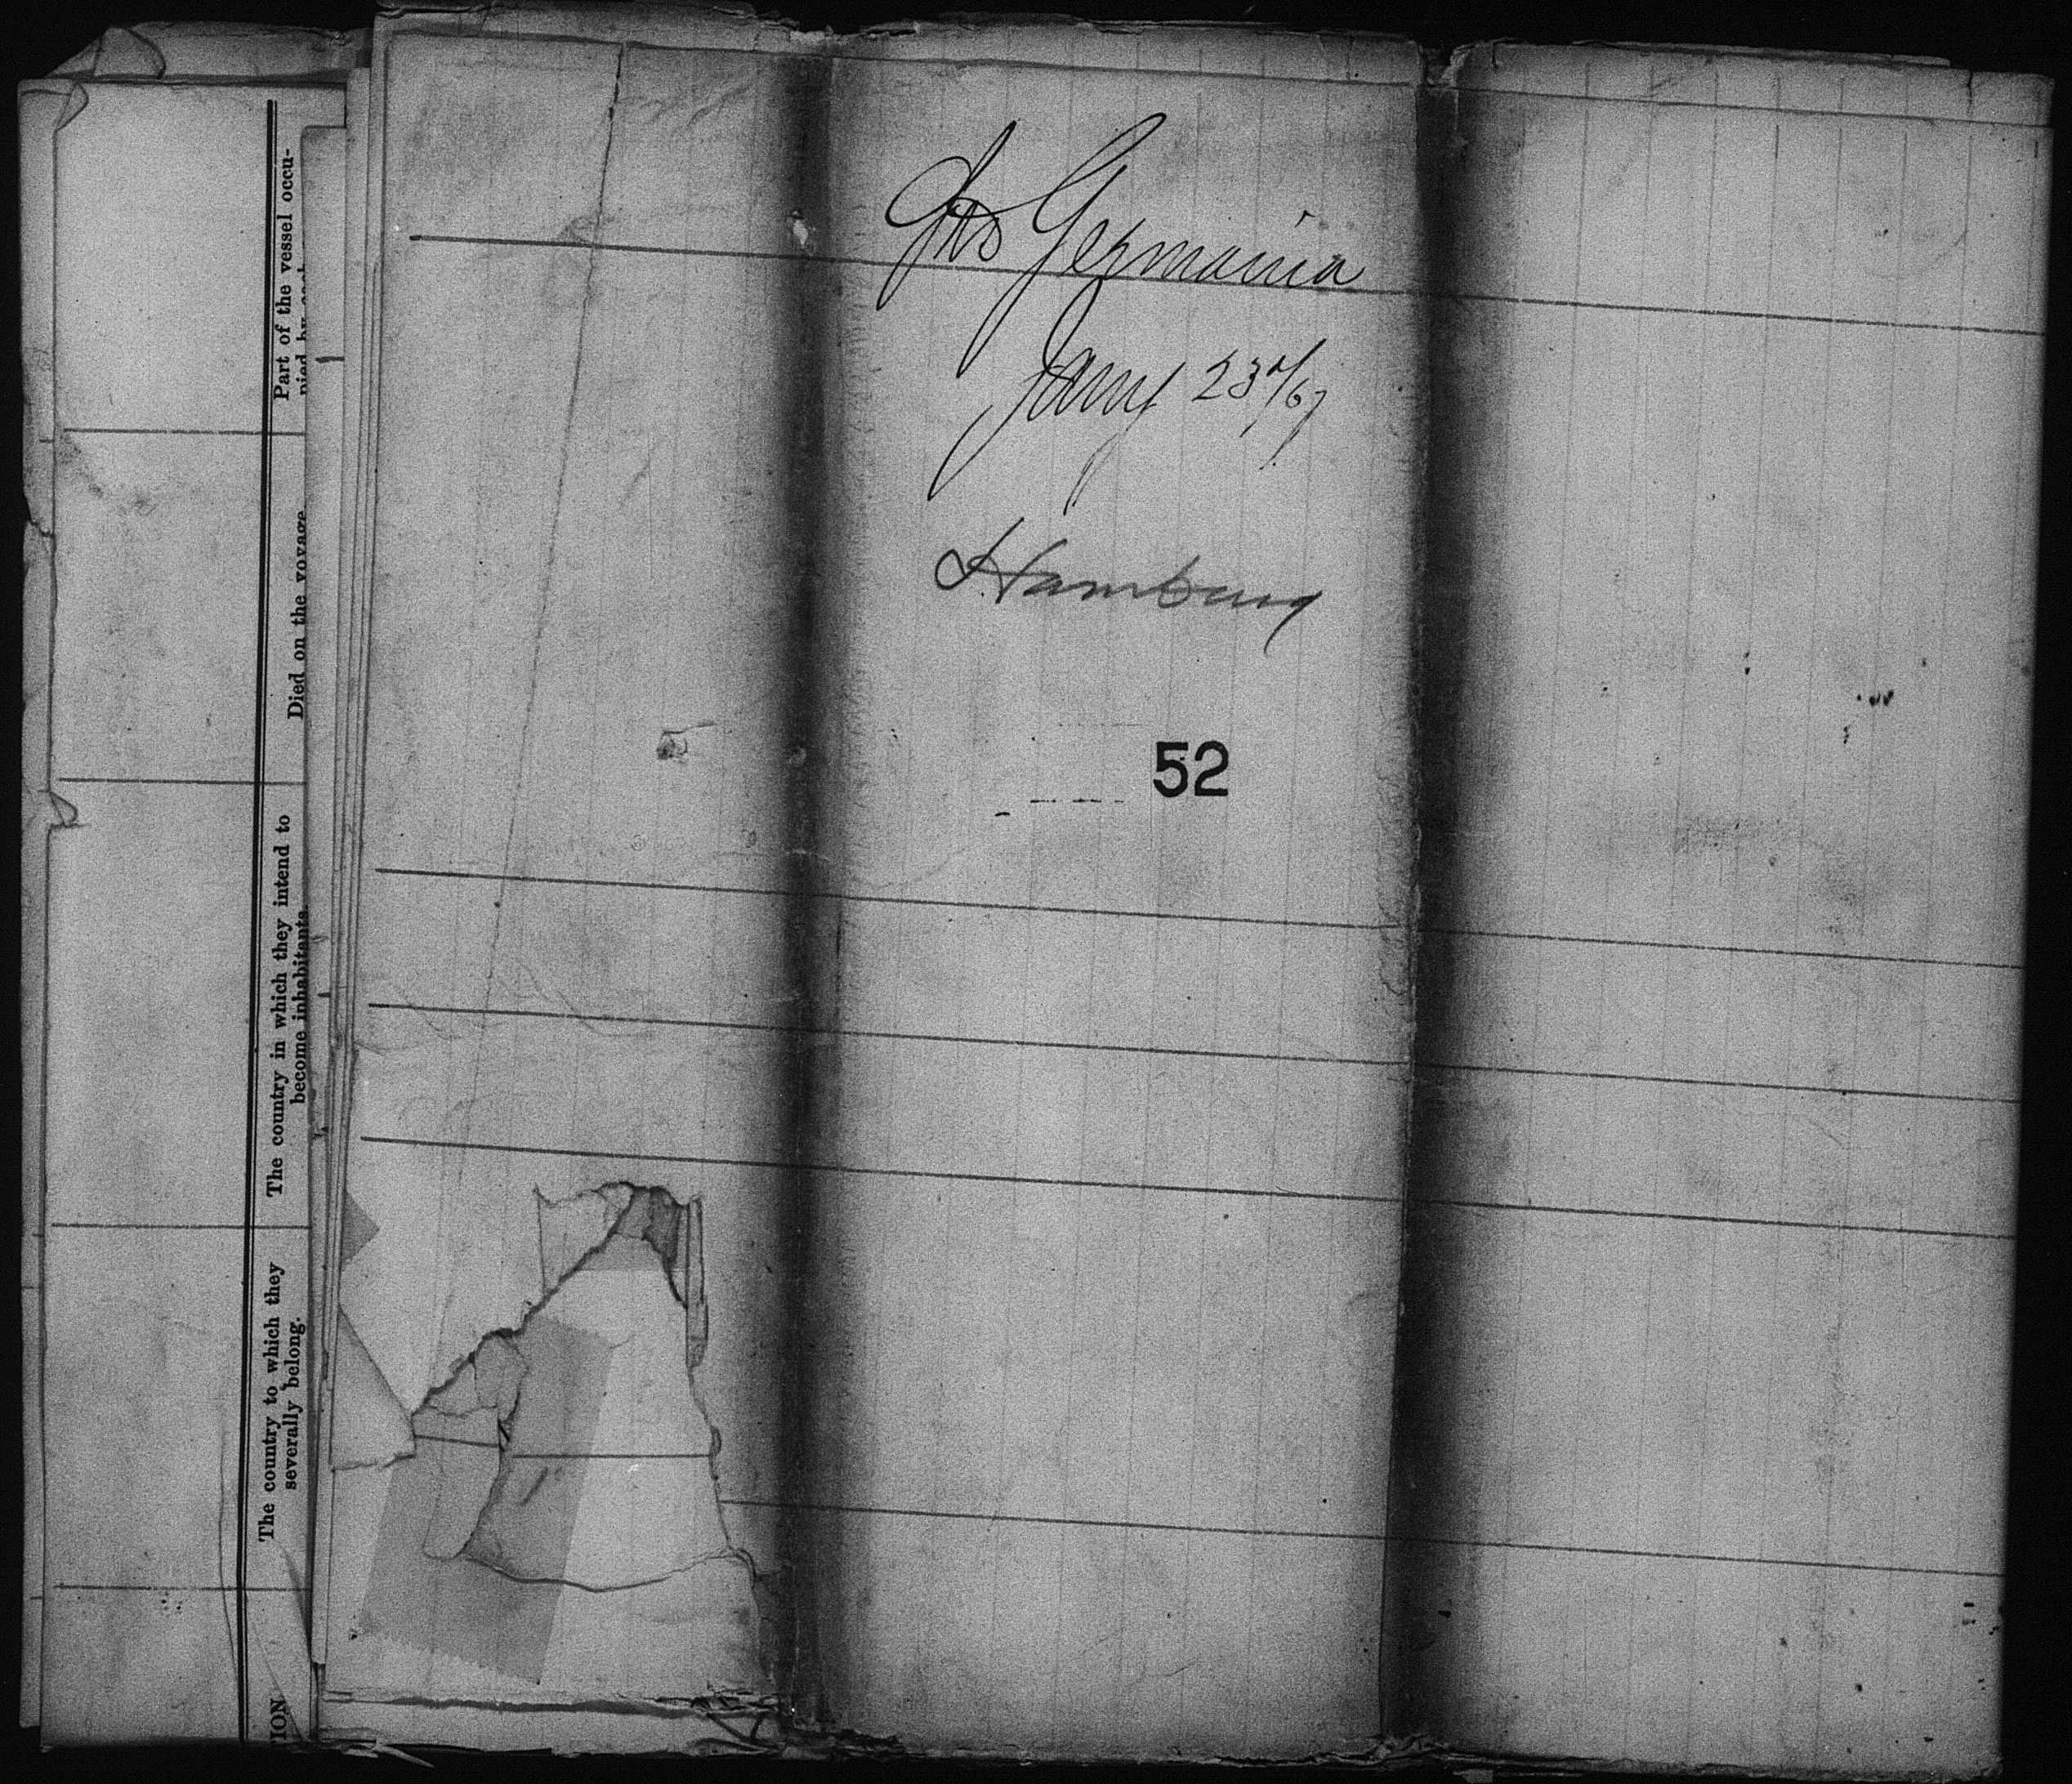 Germania
Jany 23d/67
Hamburg
52
Part of the vessel occu-
pied by each
Died on the voyage
The country in which they intend to
become inhabitants.
The country to which they
severally belong.
ION